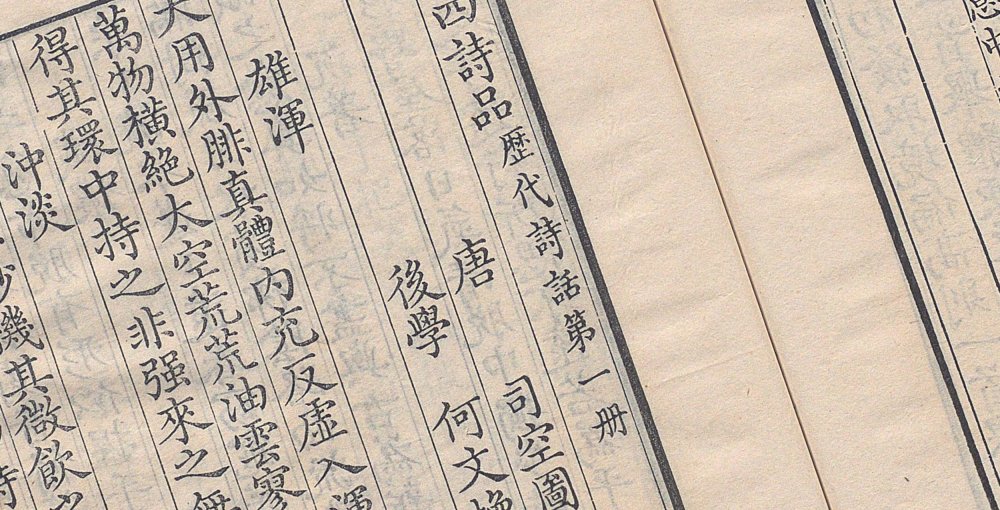 四詩品 歷代詩話第一册
唐 司空圖
後學 何文煥
雄渾
大用外腓真體内充反虛入渾
萬物橫絶太空荒荒油雲寥
得其環中持之非强來之無
沖淡
妙機其微飲之